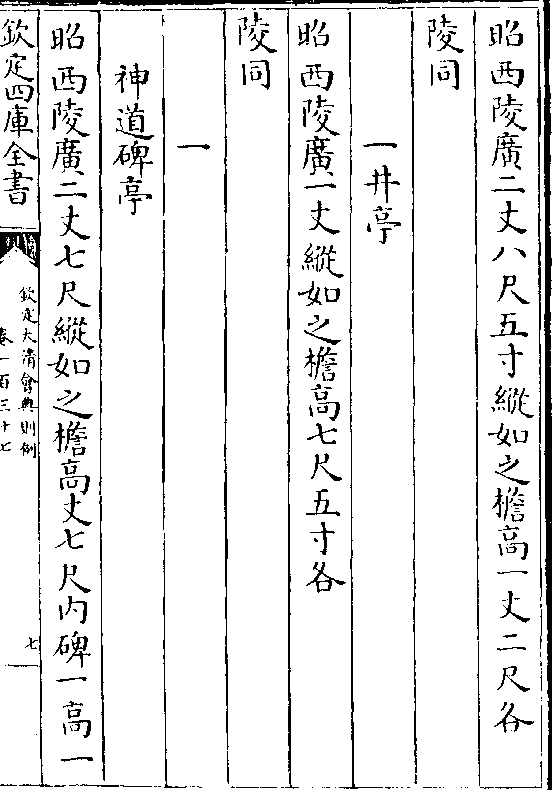 昭西陵廣二丈八尺五寸縱如之檐高一丈二尺各
陵同
一井亭
昭西陵廣一丈縱如之檐高七尺五寸各
陵同
一
神道碑亭
昭西陵廣二丈七尺縱如之檐高丈七尺内碑一高一
欽定四庫全書
欽定大清會典則例
卷一百三十七
七